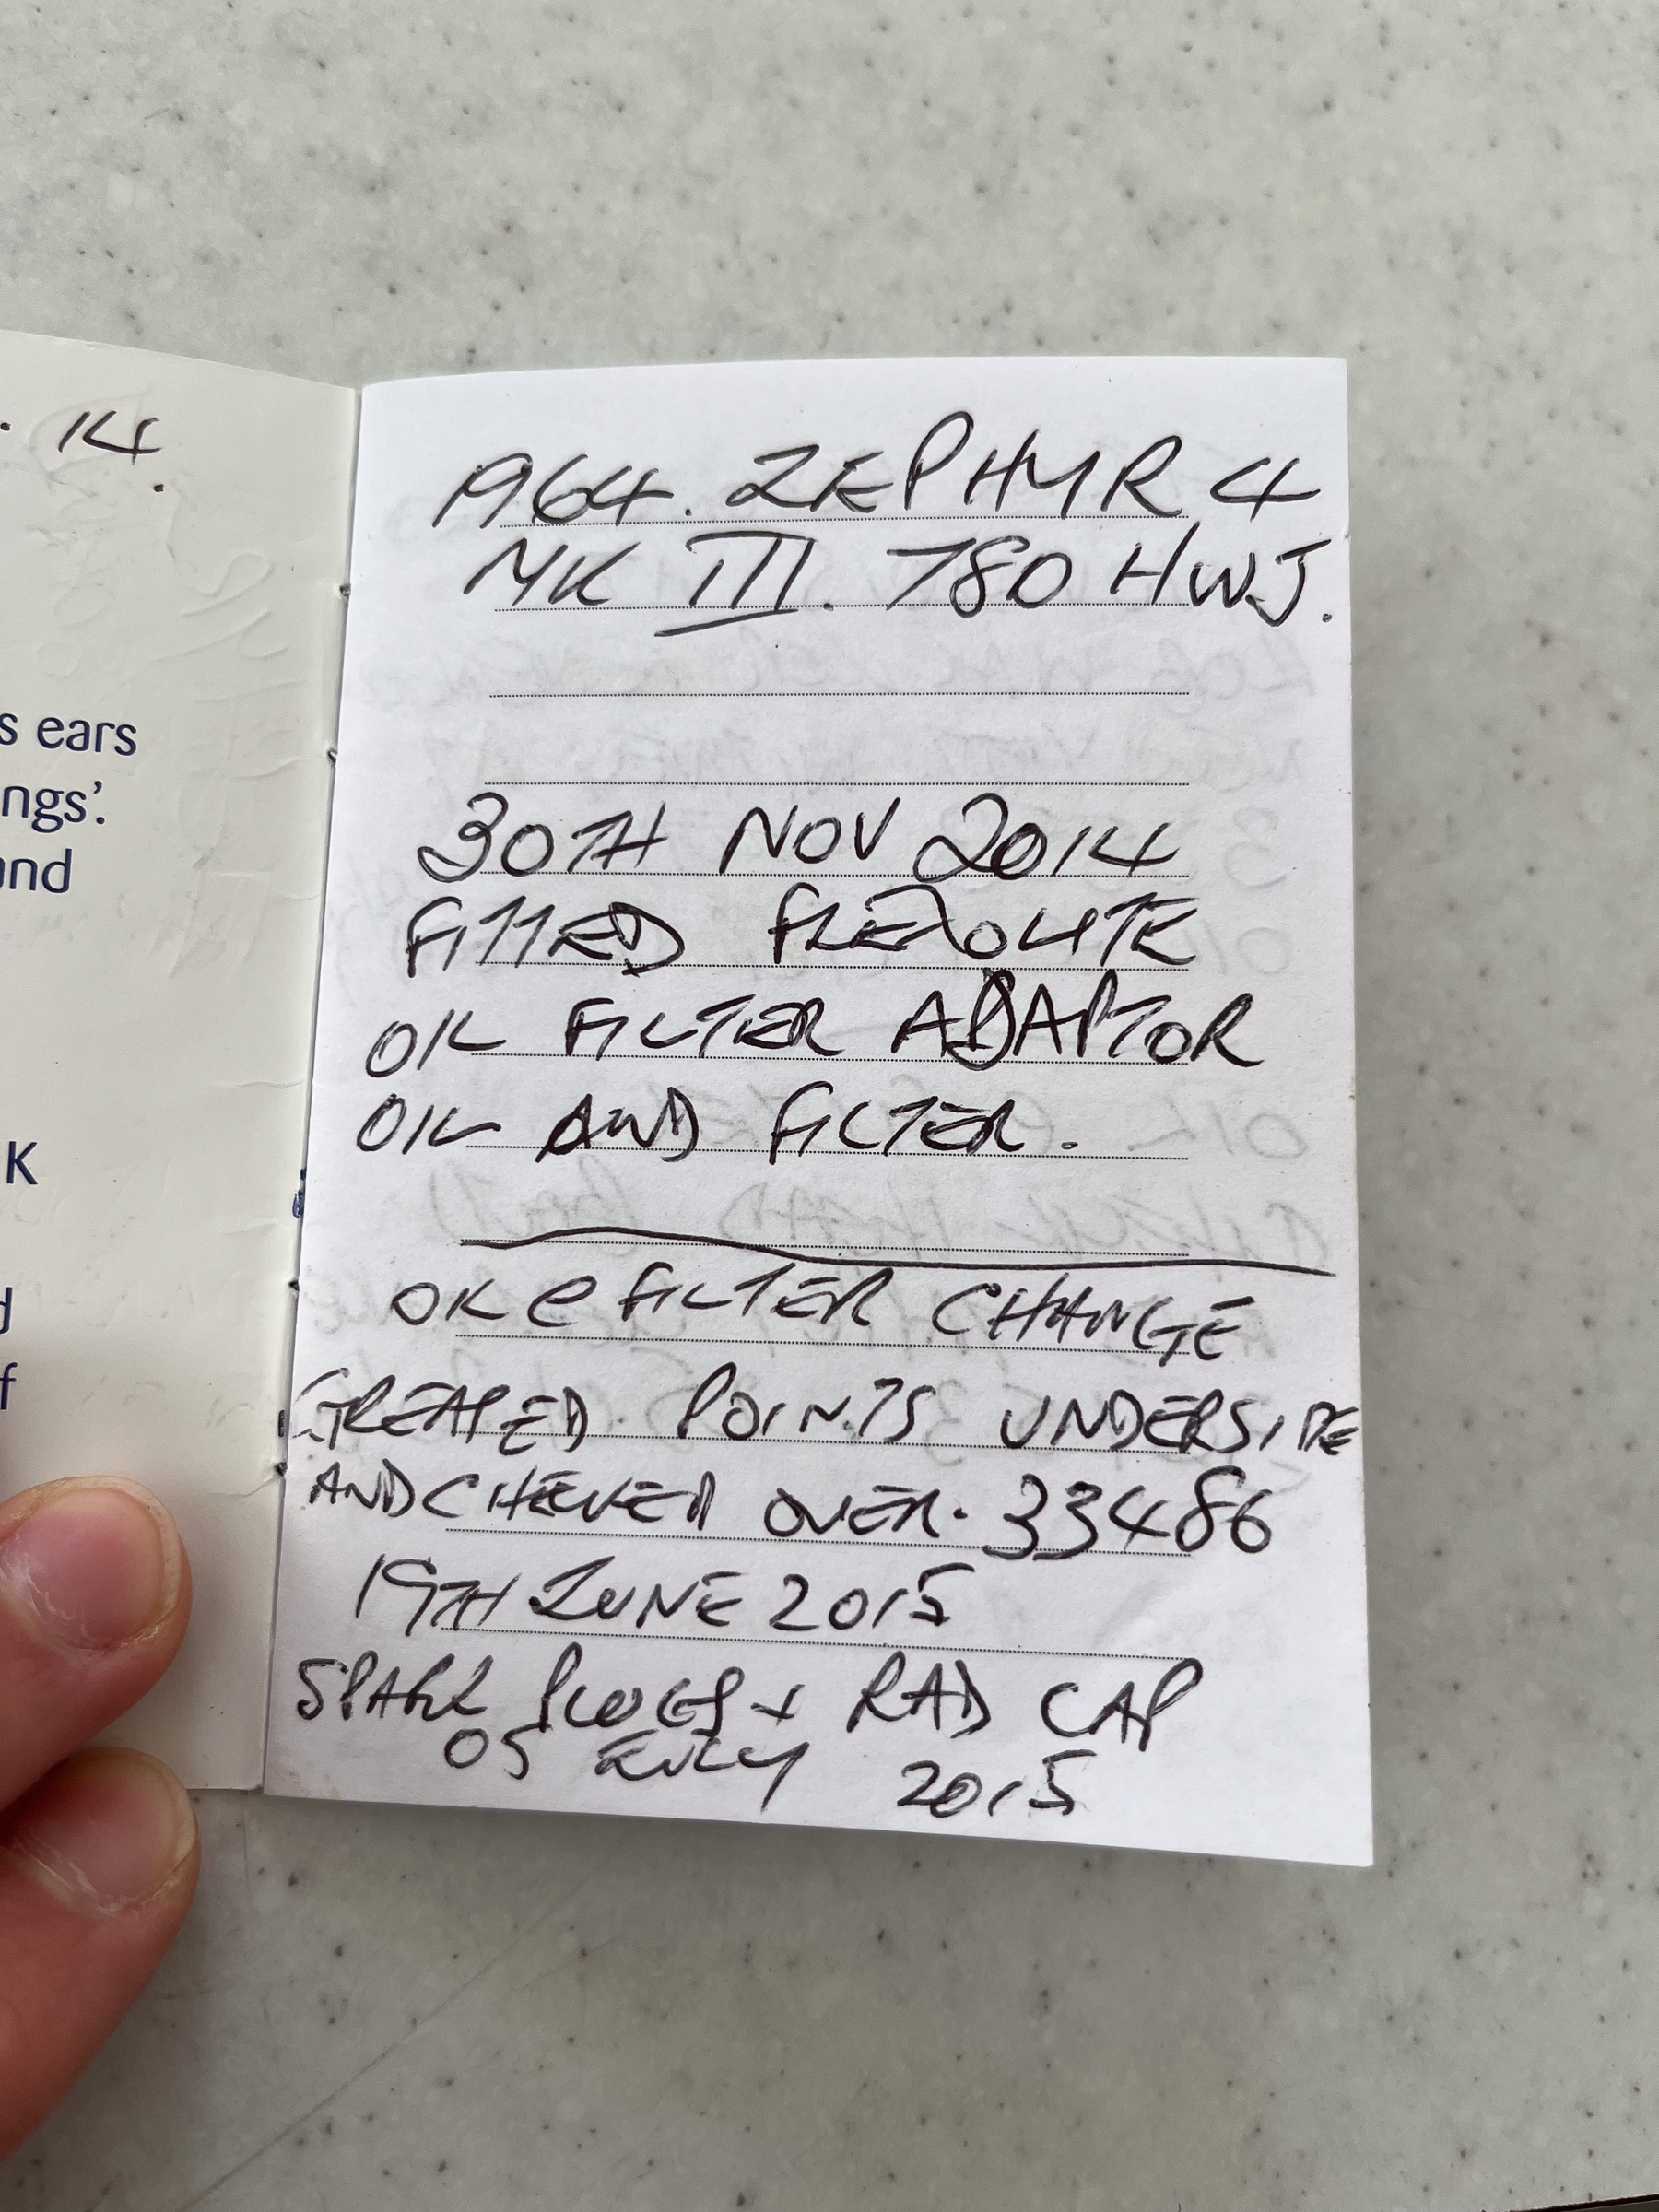 . 14.
s ears
ngs'.
and
K
d
f
1964. ZEPHYR 4
MK III. 780 HWJ.
30TH NOV 2014
FITTED FLEXOLITE
OIL FILTER ADAPTOR
OIL AND FILTER.
OIL & FILTER CHANGE
GREASED POINTS UNDERSIDE
AND CHECKED OVER. 33486
19TH JUNE 2015
SPARK PLUGS + RAD CAP
05 JULY 2015